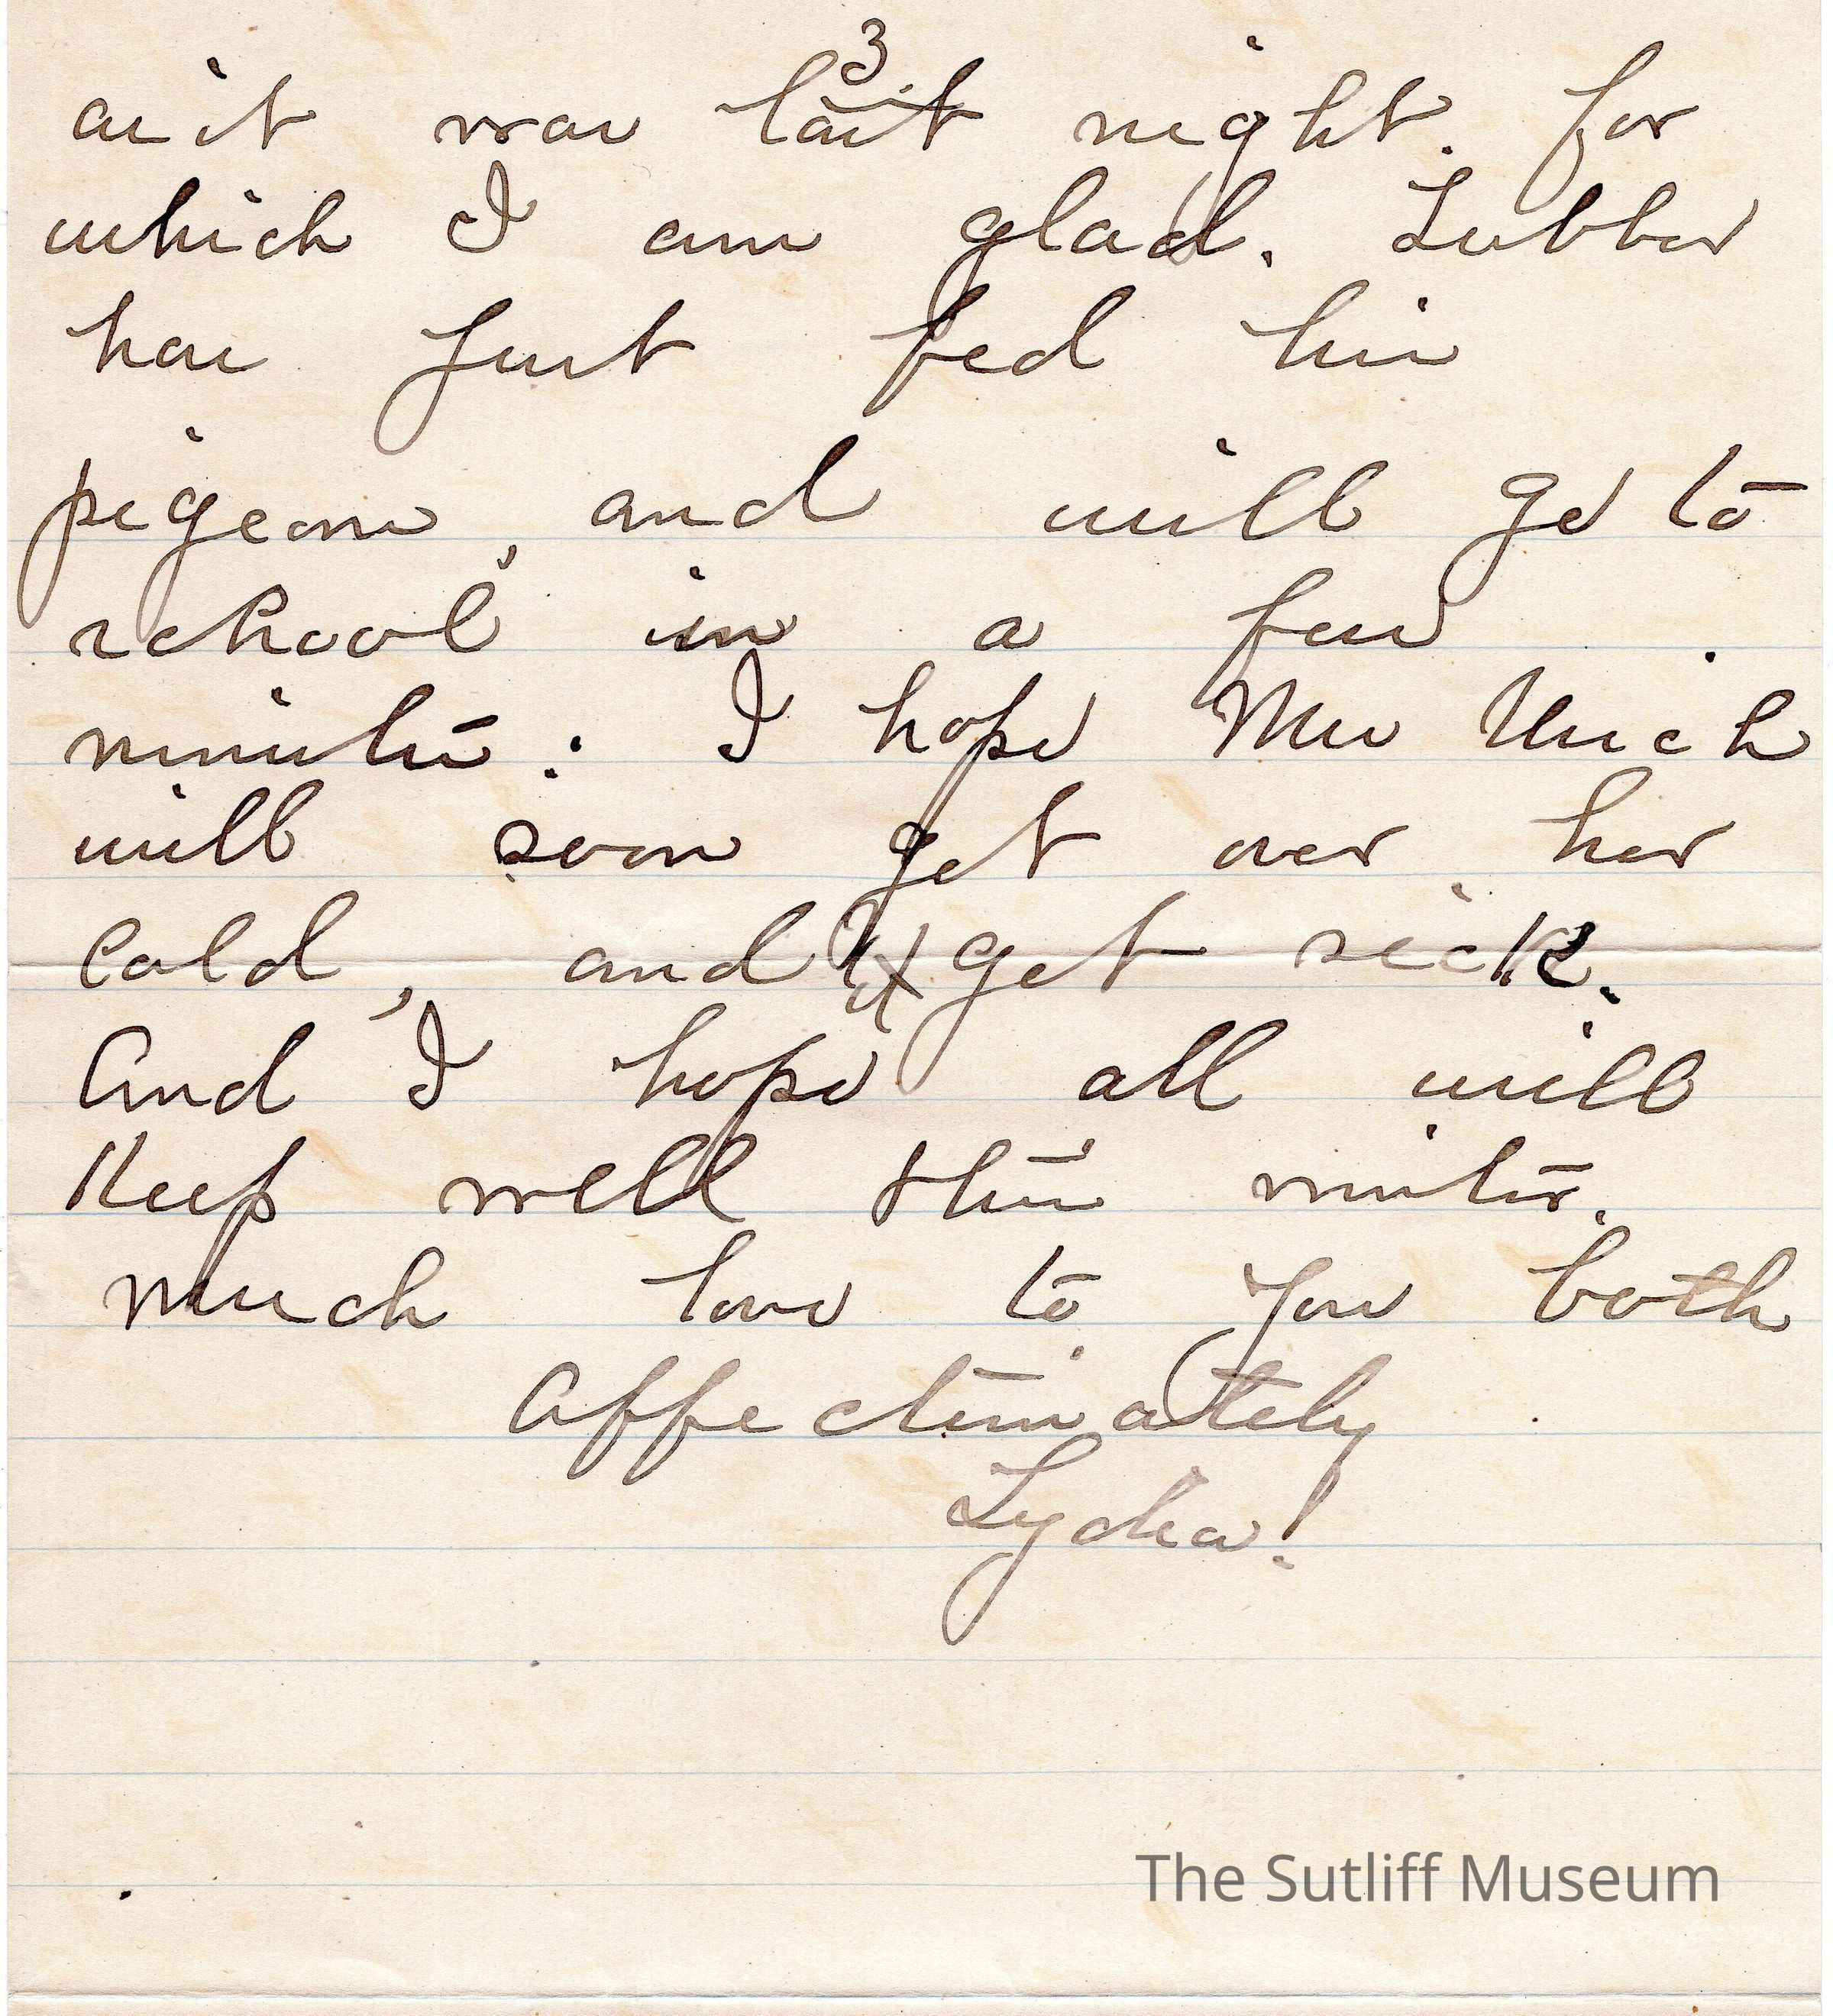 3
as it was last night. for
which I am glad. Lubber
has just fed his
pigeons, and will go to
school in a few
minutes. I hope Mrs
will soon get over her
Cold, and get sick.
And I hope all will
Keep well this winter.
Much love to you both
Affectionately
Lydia!
The Sutliff Museum